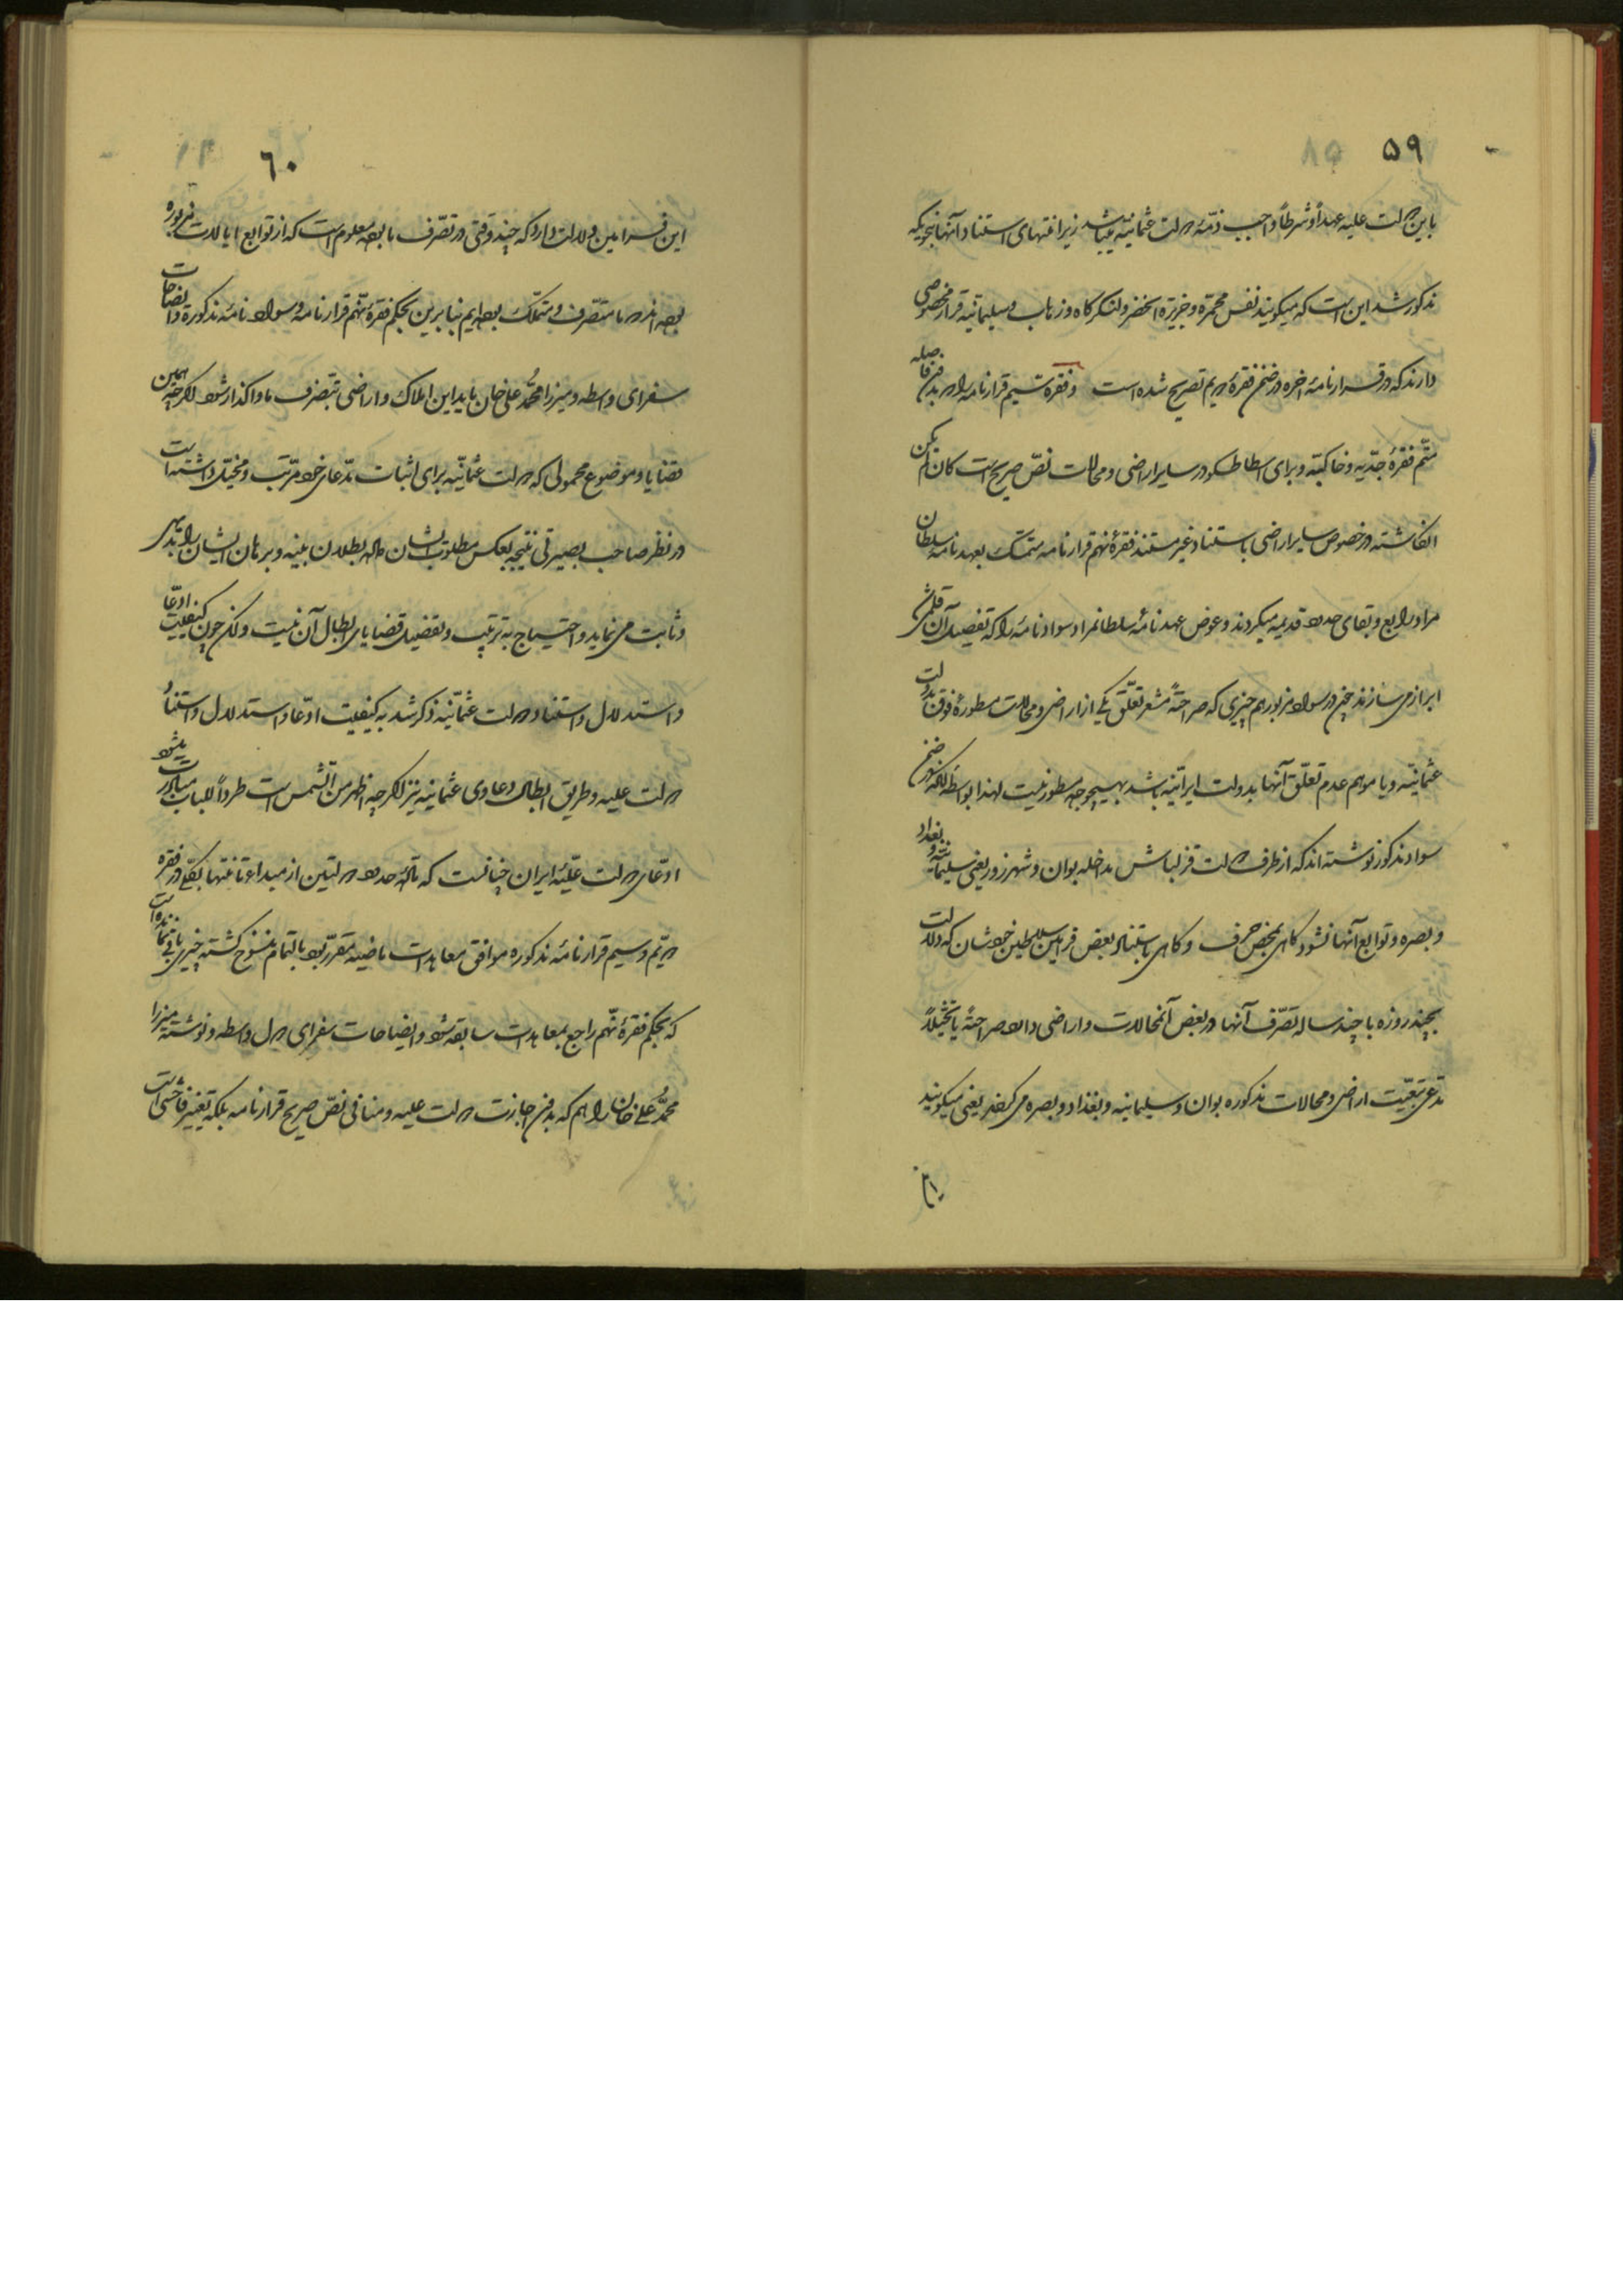 ۵۹
باین دولت علیه عهداً و شرطاً واجب ذمّهٔ دولت عثمانیّه میباشد زیرا منتهای استناد آنها بنحویکه
مذکور شد این است که میگویند نفس محمّره و جزیرة الخضر و لنگرگاه و زهاب و سلیمانیّه قرار مخصوصی
دارند که در قرارنامهٔ اخره در ضمن فقرهٔ دویم تصریح شده است و فقره سیم قرارنامه را بدون فاصله
متّمم فقرهٔ جدّیه و خاکیّه و برای اسقاط در سایر اراضی و محالات نصّ صریح است کان لم یکن
انگاشته در خصوص سایر اراضی باستناد غیر مستند فقرهٔ نهم قرارنامه متمسّک بعهدنامه سلطان
مراد رابع و بقای حدود قدیمه میگردند و عوض عهدنامهٔ سلطانمراد سوادنامهٔ را که تفصیل آن قلمی شد
ابراز می سازند چون در سواد مزبور هم چیزی که صراحةً مشعر تعلّق یکی از اراضی و محالات مسطورهٔ فوق بدولت
عثمانیّه و یا موهم عدم تعلّق آنها بدولت ایرانیّه باشد بهیچوجه مسطور نیست لهذا بواسطهٔ اینکه در ضمن
سواد مذکور نوشته اند که از طرف دولت قزلباش مداخله بوان و شهرزور یعنی سلیمانیّه و بغداد
و بصره و توابع آنها نشود گاهی بمحض حرف و گاهی باستناد بعض فرامین سلاطین خودشان که دلالت
بچند روزه یا چند ساله تصّرف آنها در بعض آنمحالات و اراضی دارد صراحةً یا تخیّلاً
مدّعی تبعّیت اراضی و محالات مذکوره بوان و سلیمانیه و بغداد و بصره می گردند یعنی میگویند
۶۰
این فرامین دلالت دارد که چند وقتی در تصّرف ما بوده معلوم است که از توابع ایالات مزبوره
بوده اند و ما متصّرف و متملّک بوده ایم بنابرین بحکم فقرهٔ نهم قرارنامه و سواد نامهٔ مذکوره و ایضاحات
سفرای واسطه و میرزا محمّد علی خان باید این املاک و اراضی بتصّرف ما واگذار شود اگرچه همین
قضایا و موضوع محمولی که دولت عثمانیّه برای اثبات مدّعای خود مرتّب و مخیّل داشته است
در نظر صاحب بصیرتی نتیجه بعکس مطلوب ایشان داده بطلان بیّنه و برهان ایشان را بدیهی
و ثابت می نماید و احتیاج به ترتیب و تفصیل قضایای ابطال آن نیست ولکن چون کیفیّت ادّعا
و استدلال و استناد دولت عثمانیّه ذکر شد به کیفیّت ادّعا و استدلال و استناد
دولت علیه و طریق ابطال دعاوی عثمانیه نیز اگرچه اظهر من الشّمس است طرداً للباب مبادرت میشود
ادّعای دولت علیّهٔ ایران چنانست که مادّهٔ حدود دولتین از مبدا تا منتها بکلّی در فقره
دویّم و سیم قرارنامهٔ مذکوره موافق معاهدات ماضیه مقرّر بود بالتمام منسوخ گشته چیزی باقی نمانده است
که بحکم فقرهٔ نهم راجع بمعاهدات سابقه شود و ایضاحات سفرای دول واسطه و نوشته میرزا
محمّد علی خان را هم که بدون اجازت دولت علیه و منافی نصّ صریح قرارنامه بلکه تغییر فاحشی است